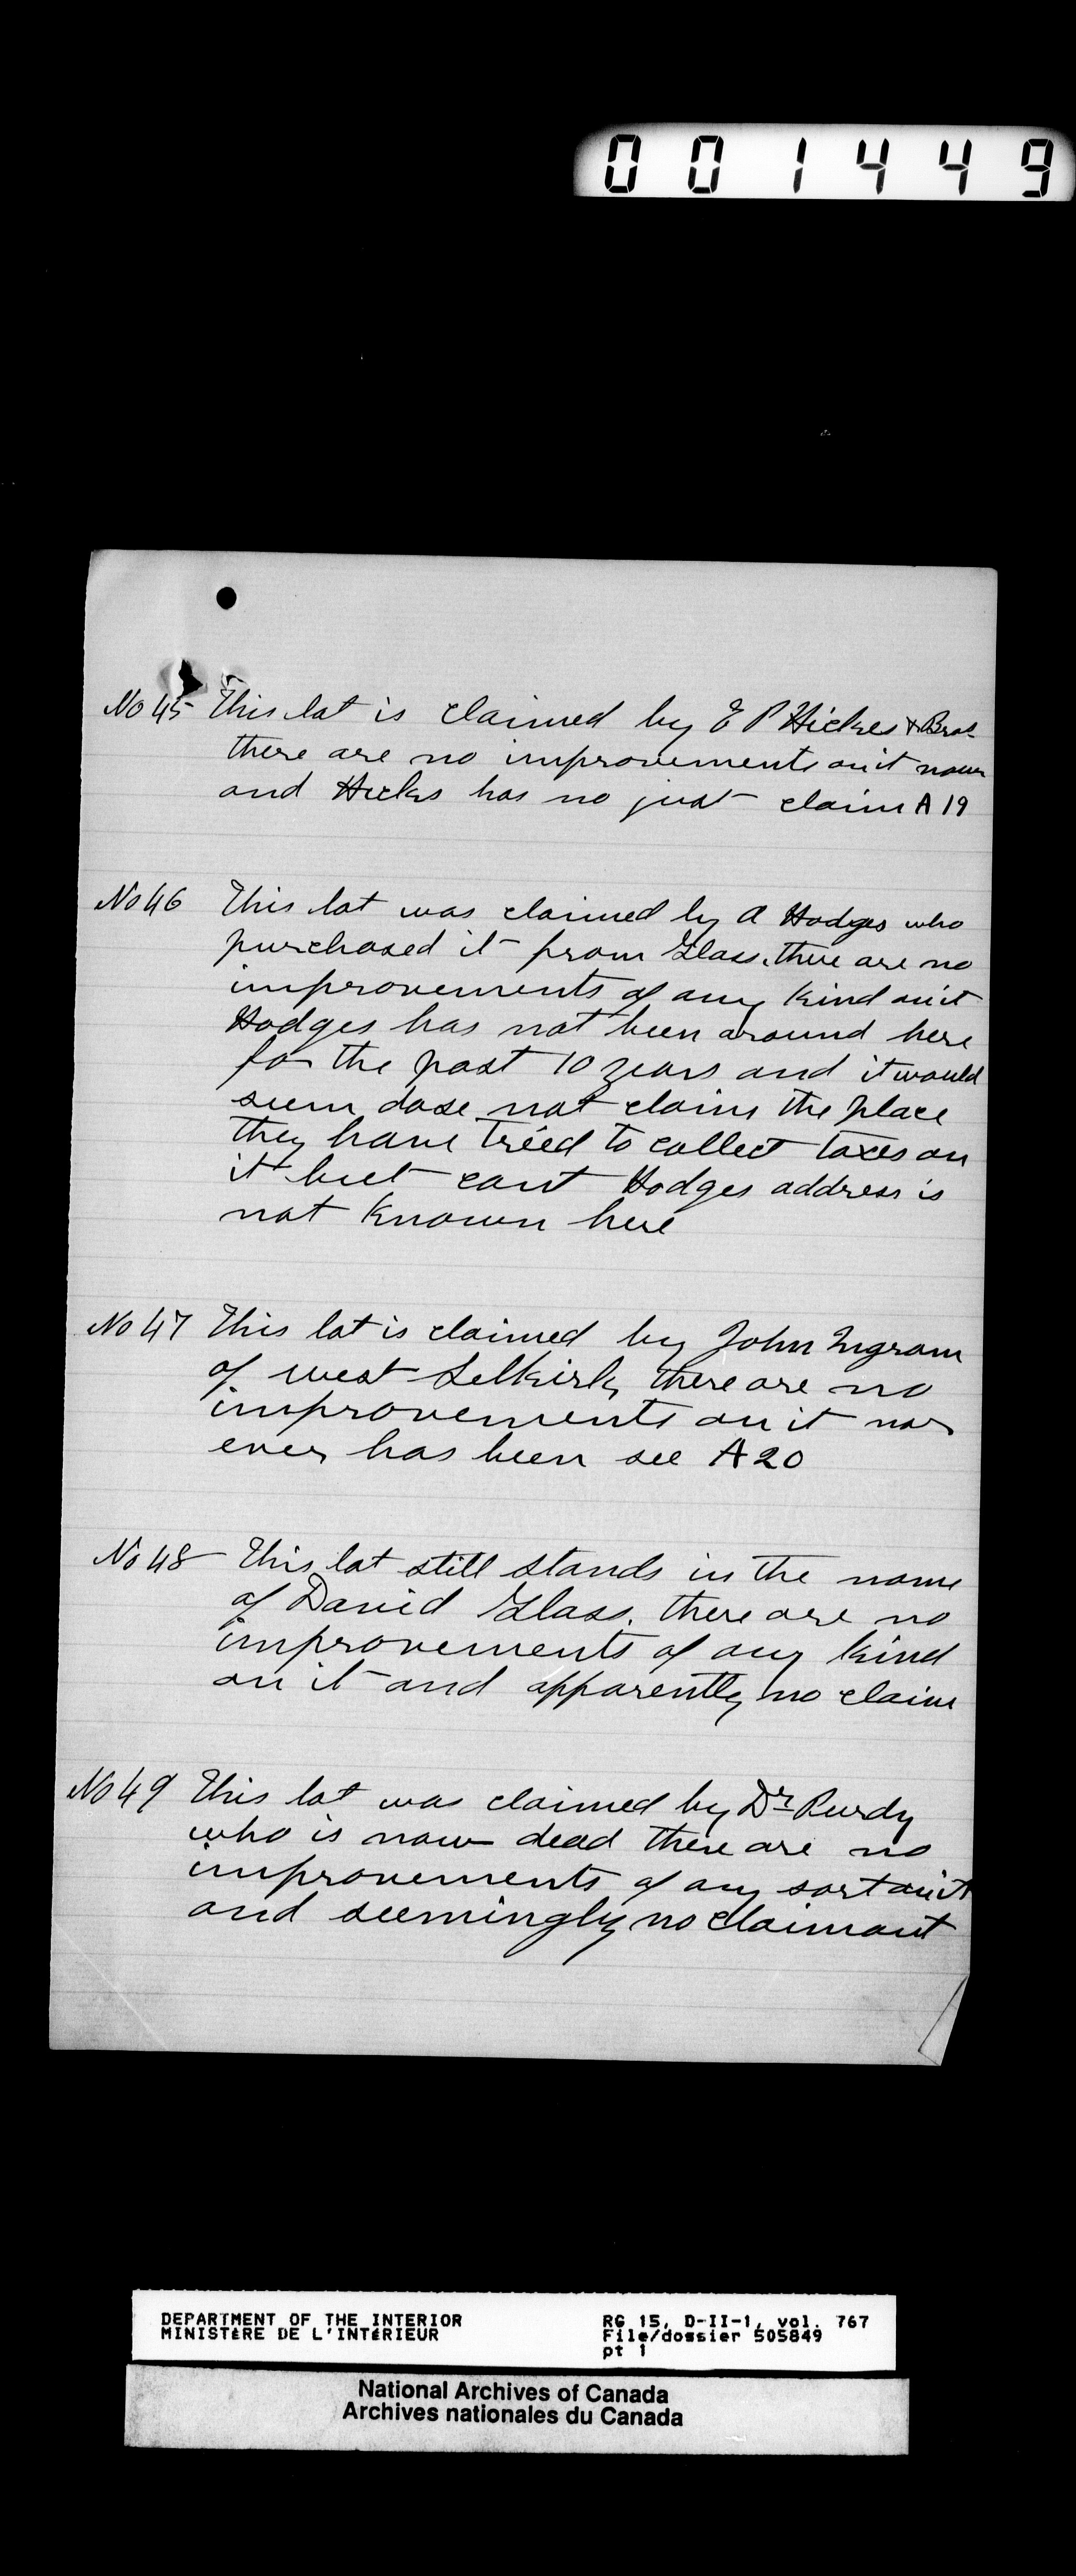 001449
No 45 This lot is claimed by E P Hickes & Bros
there are no improvements on it now
and Hicks has no just claim A 19
No 46 This lot was claimed by A Hodges who
purchased it from Glass. there are no
improvements of any kind on it
Hodges has not been around here
for the past 10 years and it would
seem dose not claim the place
they have tried to collect taxes on
it but cant Hodges address is
not known here
No 47 This lot is claimed by John Ingram
of west Selkirk, there are no
improvements on it nor
ever has been see A 20
No 48 This lot still stands in the name
of David Glass. there are no
improvements of any kind
on it and apparently no claim
No 49 This lot was claimed by Dr Purdy
who is now dead there are no
improvements of any sort on it
and seemingly no claimant
DEPARTMENT OF THE INTERIOR
MINISTÈRE DE L'INTÉRIEUR
RG 15, D-II-1, vol. 767
File/dossier 505849
pt 1
National Archives of Canada
Archives nationales du Canada